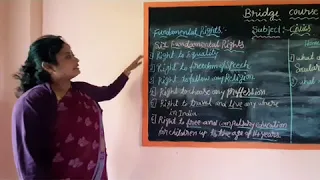 Bridge course
Fundamental Rights- Subject:- Civics
Six Fundamental Rights
1) Right to Equality
2) Right to freedom of speech
3) Right to follow any Religion
4) Right to choose any proffession
5) Right to travel and live any where
in India
6) Right to free and compulsory education
for children up to the age of 14 years
1) what a
2) what